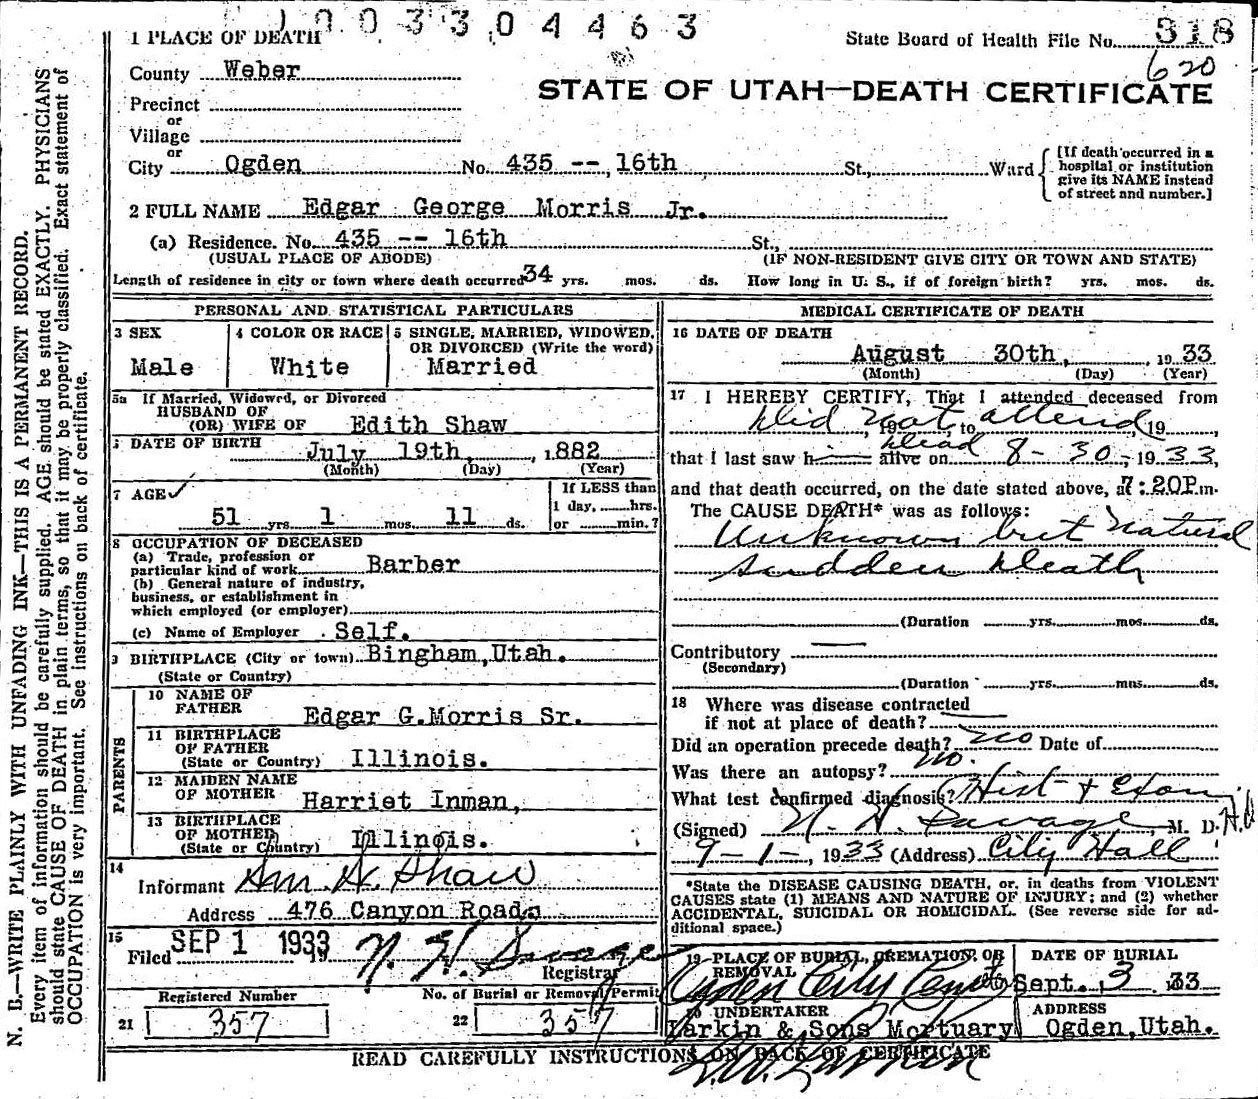 1003304463
1 PLACE OF DEATH
State Board of Health File No. 318
620
County Weber
STATE OF UTAH—DEATH CERTIFICATE
Precinct
or
Village
or
City Ogden No. 435 -- 16th St., Ward
[If death occurred in a hospital or institution give its NAME instead of street and number.]
2 FULL NAME Edgar George Morris Jr.
(a) Residence. No. 435 -- 16th St.,
(USUAL PLACE OF ABODE) (IF NON-RESIDENT GIVE CITY OR TOWN AND STATE)
Length of residence in city or town where death occurred 34 yrs. mos. ds. How long in U. S., if of foreign birth? yrs. mos. ds.
PERSONAL AND STATISTICAL PARTICULARS
3 SEX
Male
4 COLOR OR RACE
White
5 SINGLE, MARRIED, WIDOWED,
OR DIVORCED (Write the word)
Married
5a If Married, Widowed, or Divorced
HUSBAND OF
(OR) WIFE OF Edith Shaw
DATE OF BIRTH
July 19th, 1882
(Month) (Day) (Year)
7 AGE ✓
51 yrs. 1 mos. 11 ds.
If LESS than
1 day, hrs.
or min.?
8 OCCUPATION OF DECEASED
(a) Trade, profession or
particular kind of work Barber
(b) General nature of industry,
business, or establishment in
which employed (or employer)
(c) Name of Employer Self.
9 BIRTHPLACE (City or town) Bingham, Utah.
(State or Country)
PARENTS
10 NAME OF
FATHER
Edgar G. Morris Sr.
11 BIRTHPLACE
OF FATHER
(State or Country) Illinois.
12 MAIDEN NAME
OF MOTHER
Harriet Inman,
13 BIRTHPLACE
OF MOTHER
(State or Country) Illinois.
14
Informant Wm A. Shaw
Address 476 Canyon Road.
15
Filed SEP 1 1933 N. H. Savage
Registrar
Registered Number
21 357
No. of Burial or Removal Permit
22 357
MEDICAL CERTIFICATE OF DEATH
16 DATE OF DEATH
August 30th, 1933
(Month) (Day) (Year)
17 I HEREBY CERTIFY, That I attended deceased from
Did not attend, 19 , to , 19 ,
that I last saw h alive on dead 8-30-, 1933,
and that death occurred, on the date stated above, at 7:20P.m.
The CAUSE DEATH* was as follows:
Unknown but natural
sudden death
(Duration yrs. mos. ds.
Contributory —
(Secondary)
(Duration yrs. mos. ds.
18 Where was disease contracted
if not at place of death? —
Did an operation precede death? no Date of
Was there an autopsy? no.
What test confirmed diagnosis? Hist + Exam
(Signed) N. H. Savage, M. D. H.O
9-1-, 1933 (Address) City Hall
*State the DISEASE CAUSING DEATH, or, in deaths from VIOLENT
CAUSES state (1) MEANS AND NATURE OF INJURY; and (2) whether
ACCIDENTAL, SUICIDAL OR HOMICIDAL. (See reverse side for ad-
ditional space.)
19 PLACE OF BURIAL, CREMATION, OR
REMOVAL
Ogden City
DATE OF BURIAL
Sept. 3 1933
20 UNDERTAKER
Larkin & Sons Mortuary
ADDRESS
Ogden, Utah.
READ CAREFULLY INSTRUCTIONS ON BACK OF CERTIFICATE
N. B.—WRITE PLAINLY WITH UNFADING INK—THIS IS A PERMANENT RECORD.
Every item of information should be carefully supplied. AGE should be stated EXACTLY. PHYSICIANS
should state CAUSE OF DEATH in plain terms, so that it may be properly classified. Exact statement of
OCCUPATION is very important. See instructions on back of certificate.